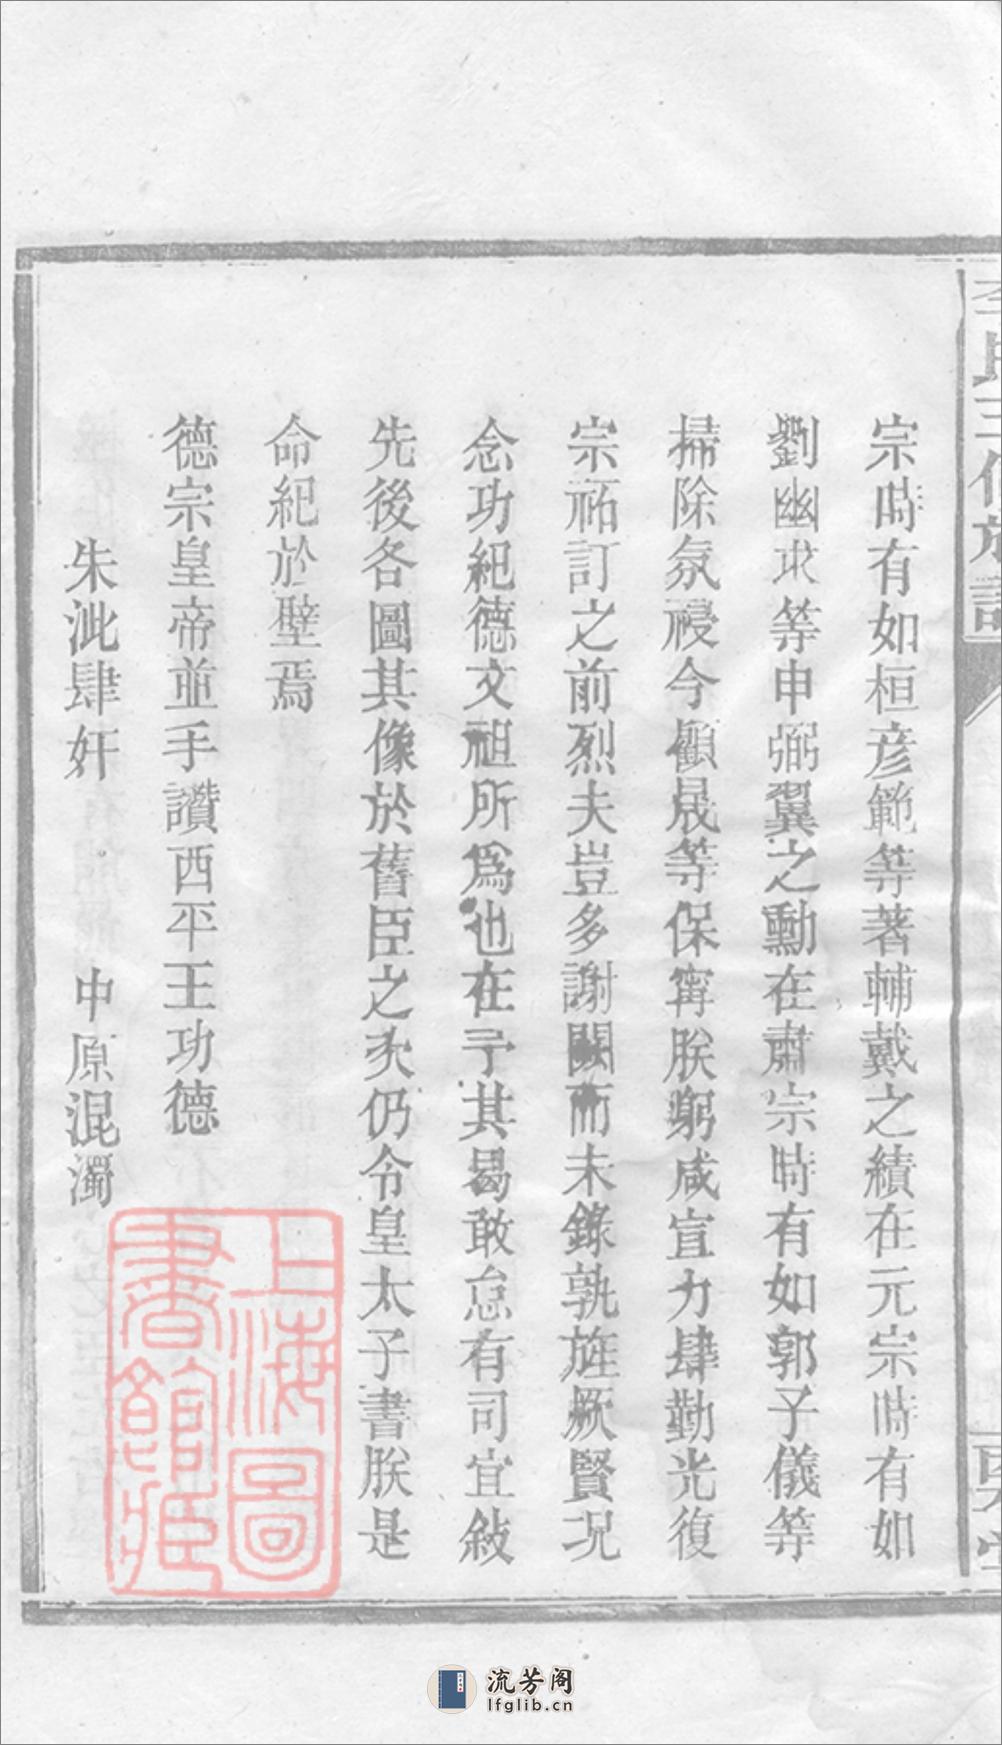 宗時有如桓彥範等著輔戴之績在元宗時有如
劉幽求等申弼翼之勳在肅宗時有如郭子儀等
掃除氛祲今顧晟等保寧朕躬咸宣力肆勤光復
宗祏訂之前烈夫豈多謝闕而未錄孰旌厥賢況
念功紀德文祖所爲也在予其曷敢怠有司宜敍
先後各圖其像於舊臣之次仍令皇太子書朕是
命紀於壁焉
德宗皇帝並手讚西平王功德
朱泚肆奸 中原混濁
上海圖
書館藏
流芳阁
lfglib.cn